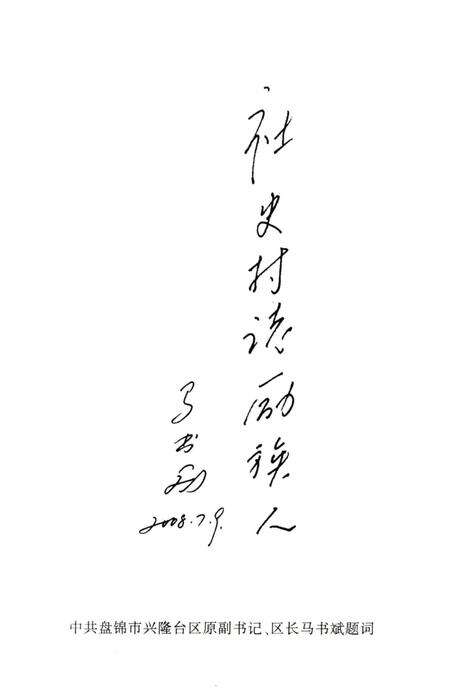 社史村志励族人
马书斌
2008.7.9.
中共盘锦市兴隆台区原副书记、区长马书斌题词